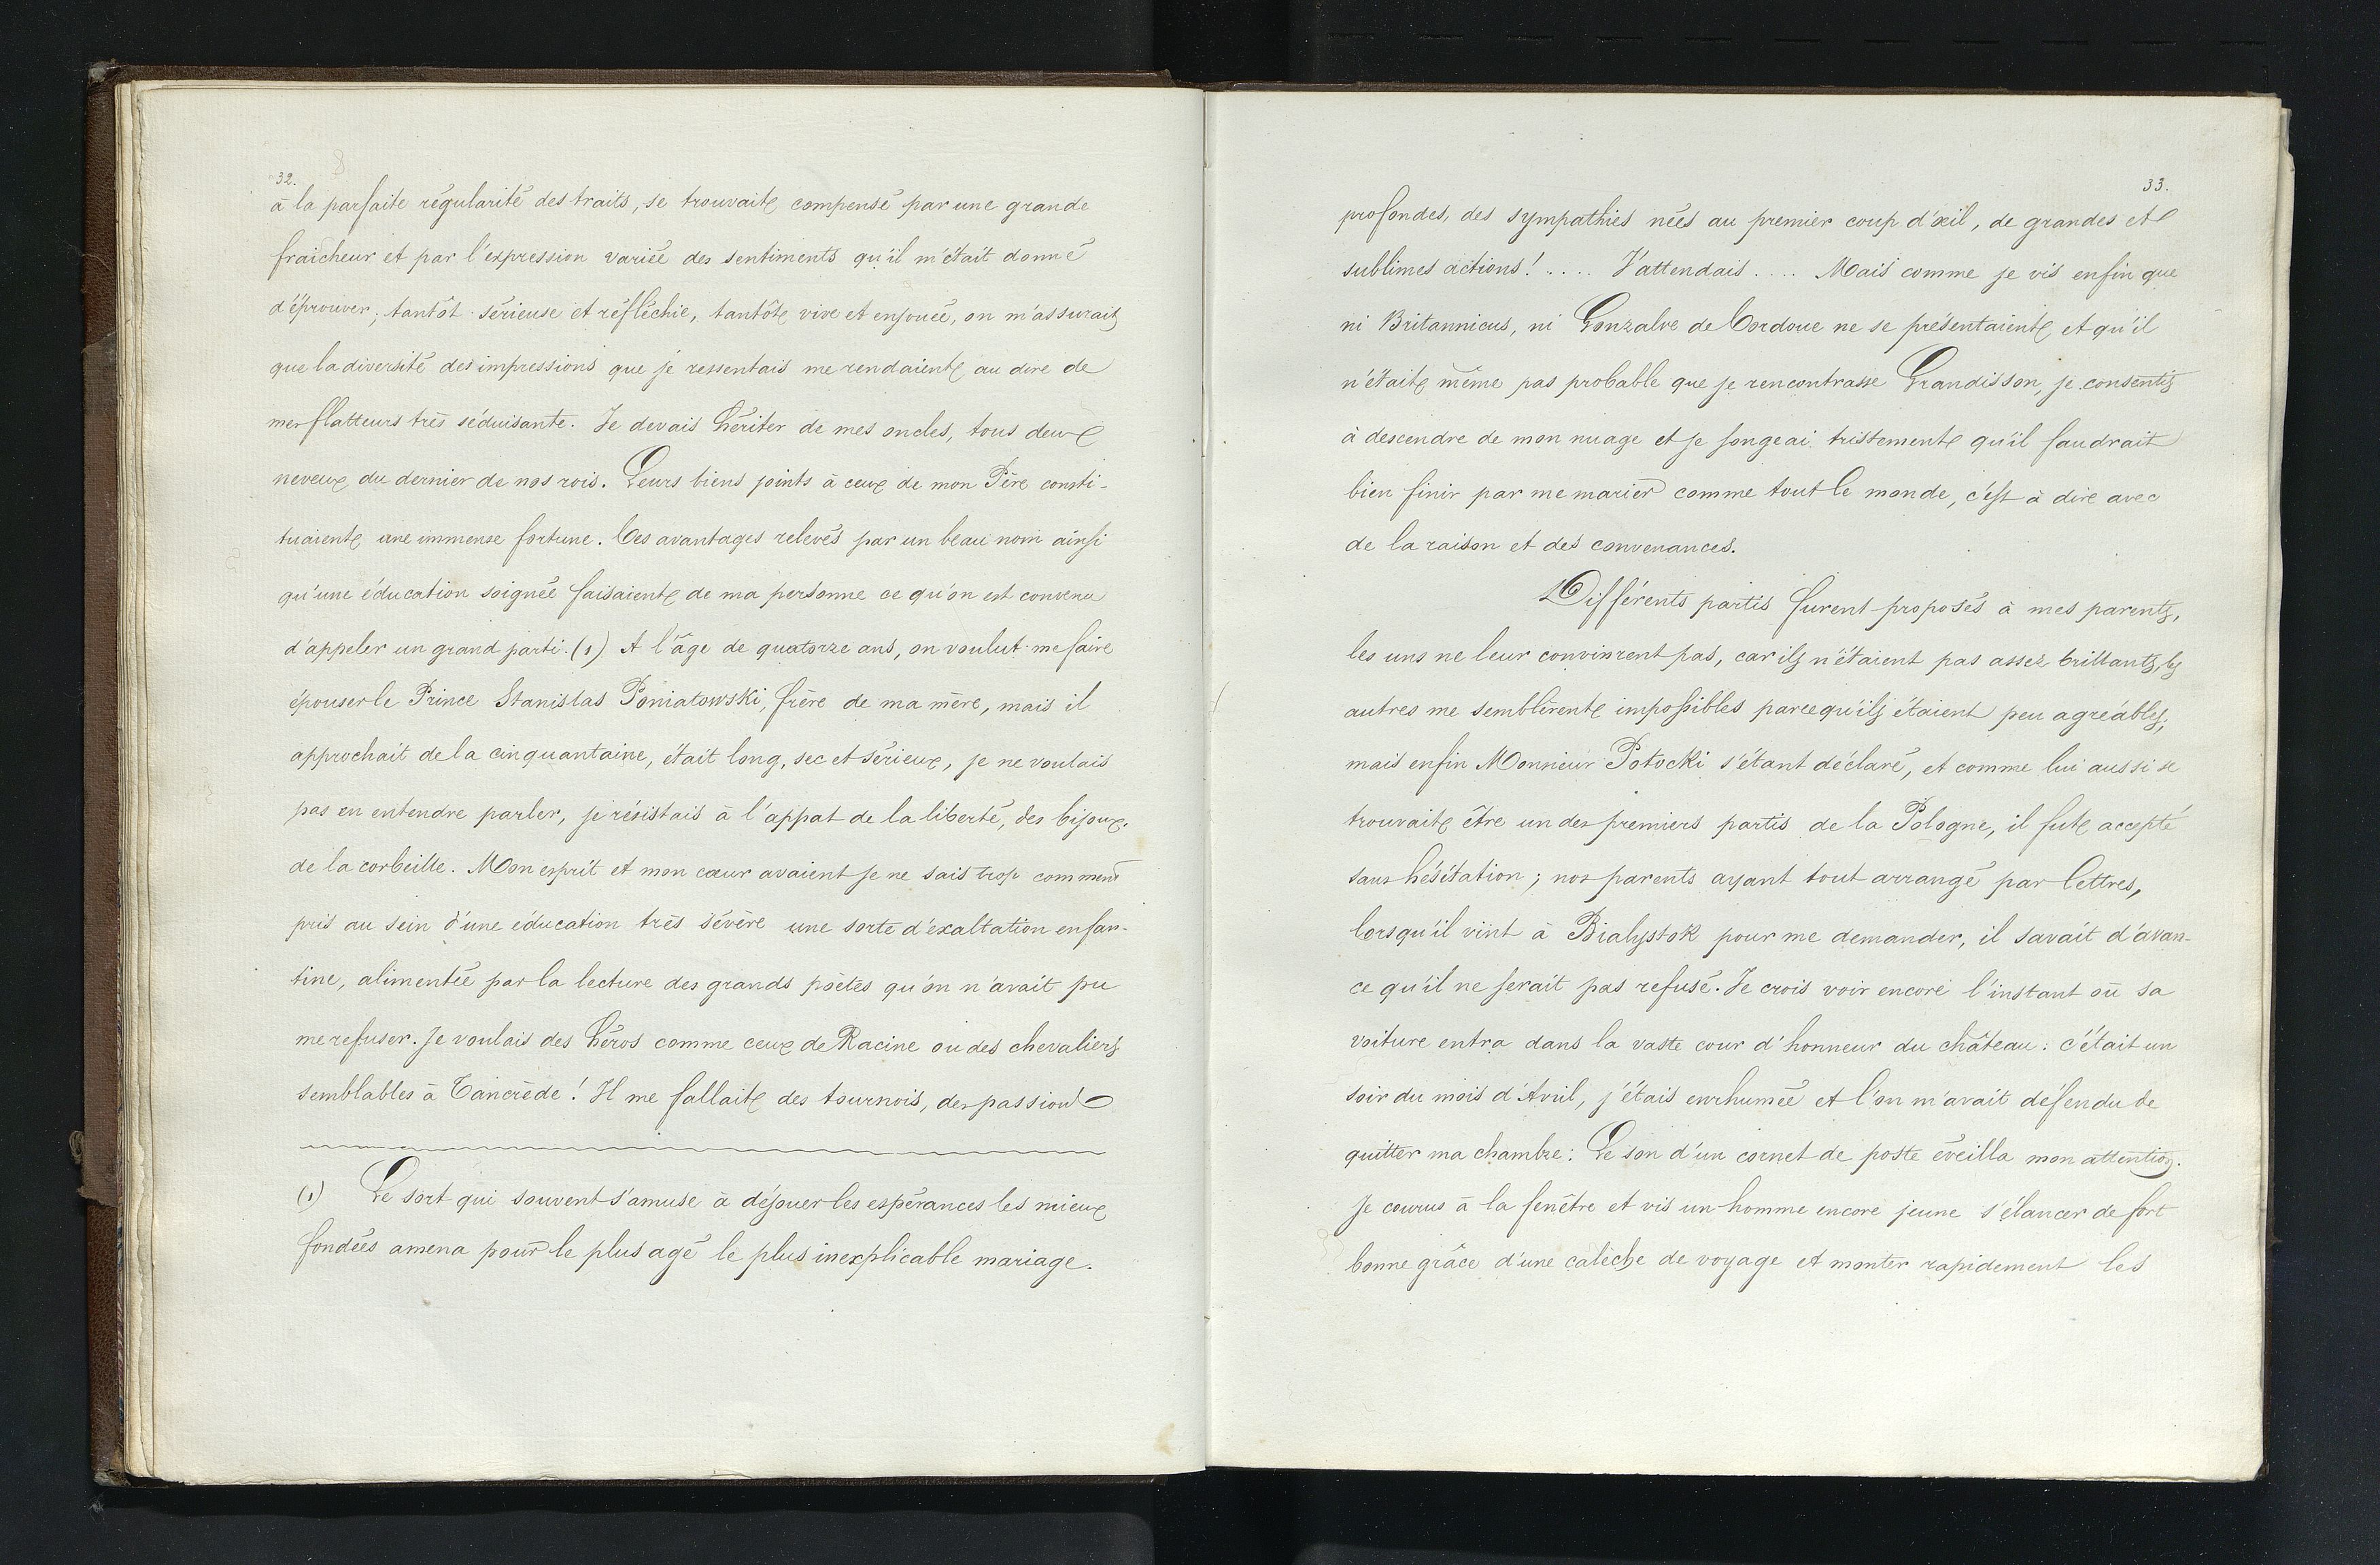 32.
à la parfaite régularité des traits, se trouvait compensé par une grande
fraicheur et par l'expression variée des sentiments qu'il m'était donné
d'éprouver; tantôt sérieuse et réfléchie, tantôt vive et enjouée, on m'assurait
que la diversité des impressions que je ressentais me rendaient au dire de
mes flatteurs très séduisante. Je devais hériter de mes oncles, tous deux
neveux du dernier de nos rois. Leurs biens joints à ceux de mon Père consti-
tuaient une immense fortune. Ces avantages relevés par un beau nom ainsi
qu'une éducation soignée faisaient de ma personne ce qu'on est convenu
d'appeler un grand parti. (1) A l'âge de quatorze ans, on voulut me faire
épouser le Prince Stanislas Poniatowski, frère de ma mère, mais il
approchait de la cinquantaine, était long, sec et sérieux, je ne voulais
pas en entendre parler, je résistais à l'appat de la liberté, des bijoux.
de la corbeille. Mon esprit et mon cœur avaient je ne sais trop comment
pris au sein d'une éducation très sévère une sorte d'exaltation enfan-
tine, alimentée par la lecture des grands poètes qu'on n'avait pu
me refuser. Je voulais des héros comme ceux de Racine ou des chevaliers
semblables à Tancrède! Il me fallait des tournois, des passions
(1) Le sort qui souvent s'amuse à déjouer les espérances les mieux
fondées amena pour le plus agé le plus inexplicable mariage.
33.
profondes, des sympathies nées au premier coup d'œil, de grandes et
sublimes actions! .... J'attendais .... Mais comme je vis enfin que
ni Britannicus, ni Gonzalve de Cordoue ne se présentaient et qu'il
n'était même pas probable que je rencontrasse Grandisson, je consentis
à descendre de mon nuage et je songeai tristement qu'il faudrait
bien finir par me marier comme tout le monde, c'est à dire avec
de la raison et des convenances.
Différents partis furent proposés à mes parents,
les uns ne leur convinrent pas, car ils n'étaient pas assez brillants, les
autres me semblèrent impossibles parcequ'ils étaient peu agréables,
mais enfin Monsieur Potocki s'étant déclaré, et comme lui aussi se
trouvait être un des premiers partis de la Pologne, il fut accepté
sans hésitation; nos parents ayant tout arrangé par lettres,
lorsqu'il vint à Bialystok pour me demander, il savait d'avan-
ce qu'il ne serait pas refusé. Je crois voir encore l'instant où sa
voiture entra dans la vaste cour d'honneur du château: c'était un
soir du mois d'Avril, j'étais enrhumée et l'on m'avait défendu de
quitter ma chambre: Le son d'un cornet de poste éveilla mon attention.
Je courus à la fenêtre et vis un homme encore jeune s'élancer de fort
bonne grâce d'une calèche de voyage et monter rapidement les